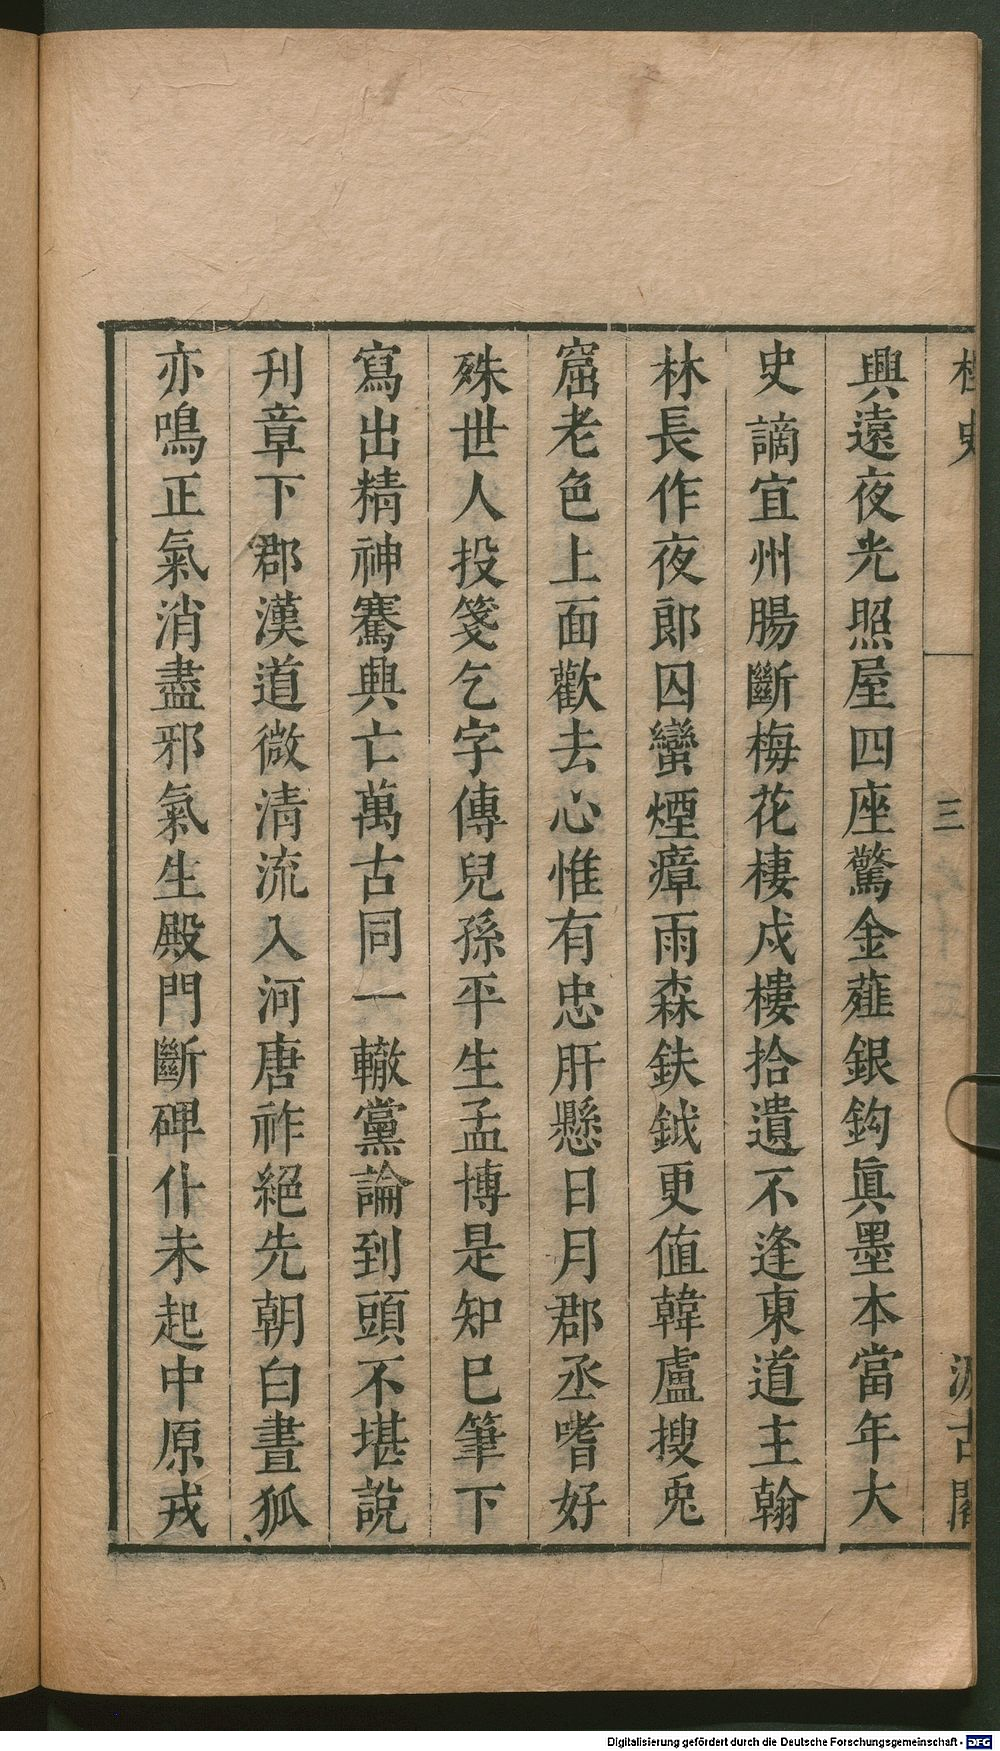 桯史　三　汲古閣
興遠夜光照屋四座驚金薤銀鈎眞墨本當年大
史謫宜州腸斷梅花棲戍樓拾遺不逢東道主翰
林長作夜郎囚蠻煙瘴雨森鈇鉞更値韓盧搜兎
窟老色上面歡去心惟有忠肝懸日月郡丞嗜好
殊世人投箋乞字傳兒孫平生孟博是知巳筆下
寫出精神騫興亡萬古同一轍黨論到頭不堪說
刊章下郡漢道微清流入河唐祚絕先朝白晝狐
亦鳴正氣消盡邪氣生殿門斷碑仆未起中原戎
Digitalisierung gefördert durch die Deutsche Forschungsgemeinschaft - DFG